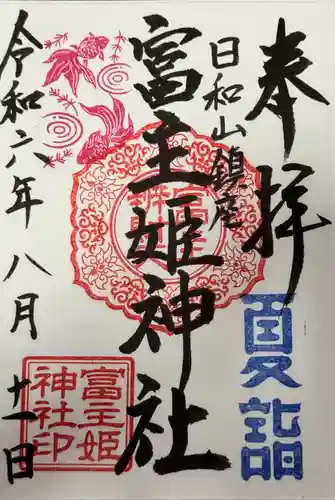 奉拝
夏詣
日和山鎮座
富主姫神社
富主姫神社印
令和六年八月十一日